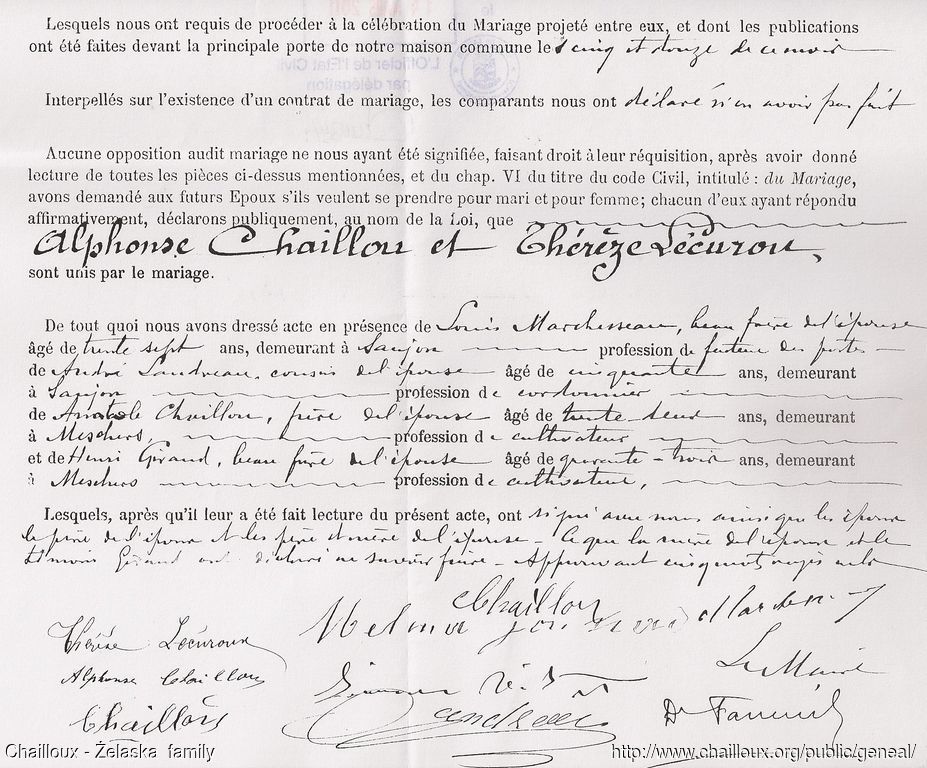 Lesquels nous ont requis de procéder à la célébration du Mariage projeté entre eux, et dont les publications
ont été faites devant la principale porte de notre maison commune les cinq et douze de ce mois
L'Officier de l'Etat Civil
par délégation
Interpellés sur l'existence d'un contrat de mariage, les comparants nous ont déclaré n'en avoir pas fait
Aucune opposition audit mariage ne nous ayant été signifiée, faisant droit à leur réquisition, après avoir donné
lecture de toutes les pièces ci-dessus mentionnées, et du chap. VI du titre du code Civil, intitulé : du Mariage,
avons demandé aux futurs Epoux s'ils veulent se prendre pour mari et pour femme; chacun d'eux ayant répondu
affirmativement, déclarons publiquement, au nom de la Loi, que
Alphonse Chaillou et Thérèze Lécurou,
sont unis par le mariage.
De tout quoi nous avons dressé acte en présence de Louis Marchesseau, beau frère de l'épouse
âgé de trente sept ans, demeurant à Saujon profession de facteur des postes
de André Landreau, cousin de l'épouse âgé de cinquante ans, demeurant
à Saujon profession de cordonnier
de Anatole Chaillou, frère de l'épouse âgé de trente deux ans, demeurant
à Meschers, profession de cultivateur
et de Henri Giraud, beau frère de l'épouse âgé de quarante-trois ans, demeurant
à Meschers profession de cultivateur,
Lesquels, après qu'il leur a été fait lecture du présent acte, ont signé avec nous ainsi que les époux
le père de l'époux et les père et mère de l'épouse - Ce que la mère de l'époux et le
témoin Giraud ont déclaré ne savoir faire - Approuvant cinquante rayés nuls
Chaillou
Thérèse Lécuroux
Alphonse Chaillou
Le Maire
Chaillou
Landreau
Dr
Chailloux - Żelaska family
http://www.chailloux.org/public/geneal/